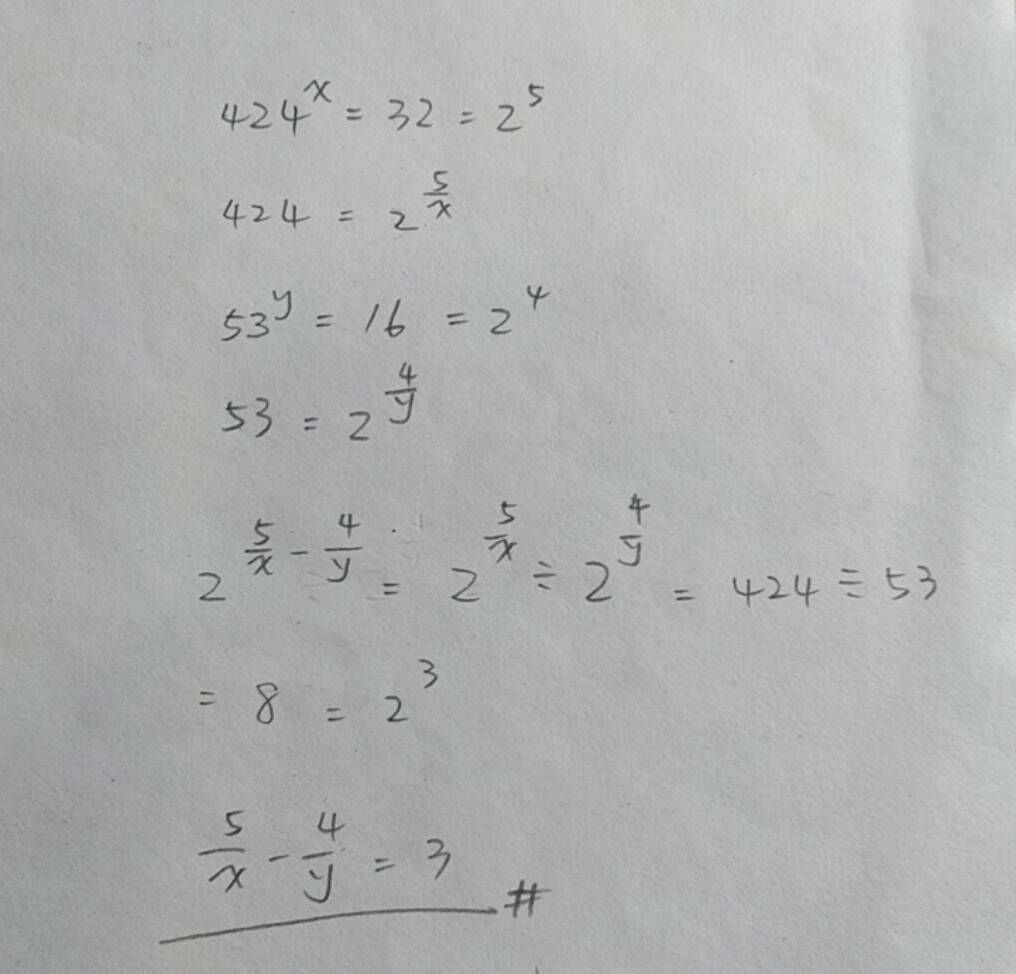 424^x = 32 = 2^5
424 = 2^(5/x)
53^y = 16 = 2^4
53 = 2^(4/y)
2^(5/x - 4/y) = 2^(5/x) ÷ 2^(4/y) = 424 ÷ 53
= 8 = 2^3
5/x - 4/y = 3 #